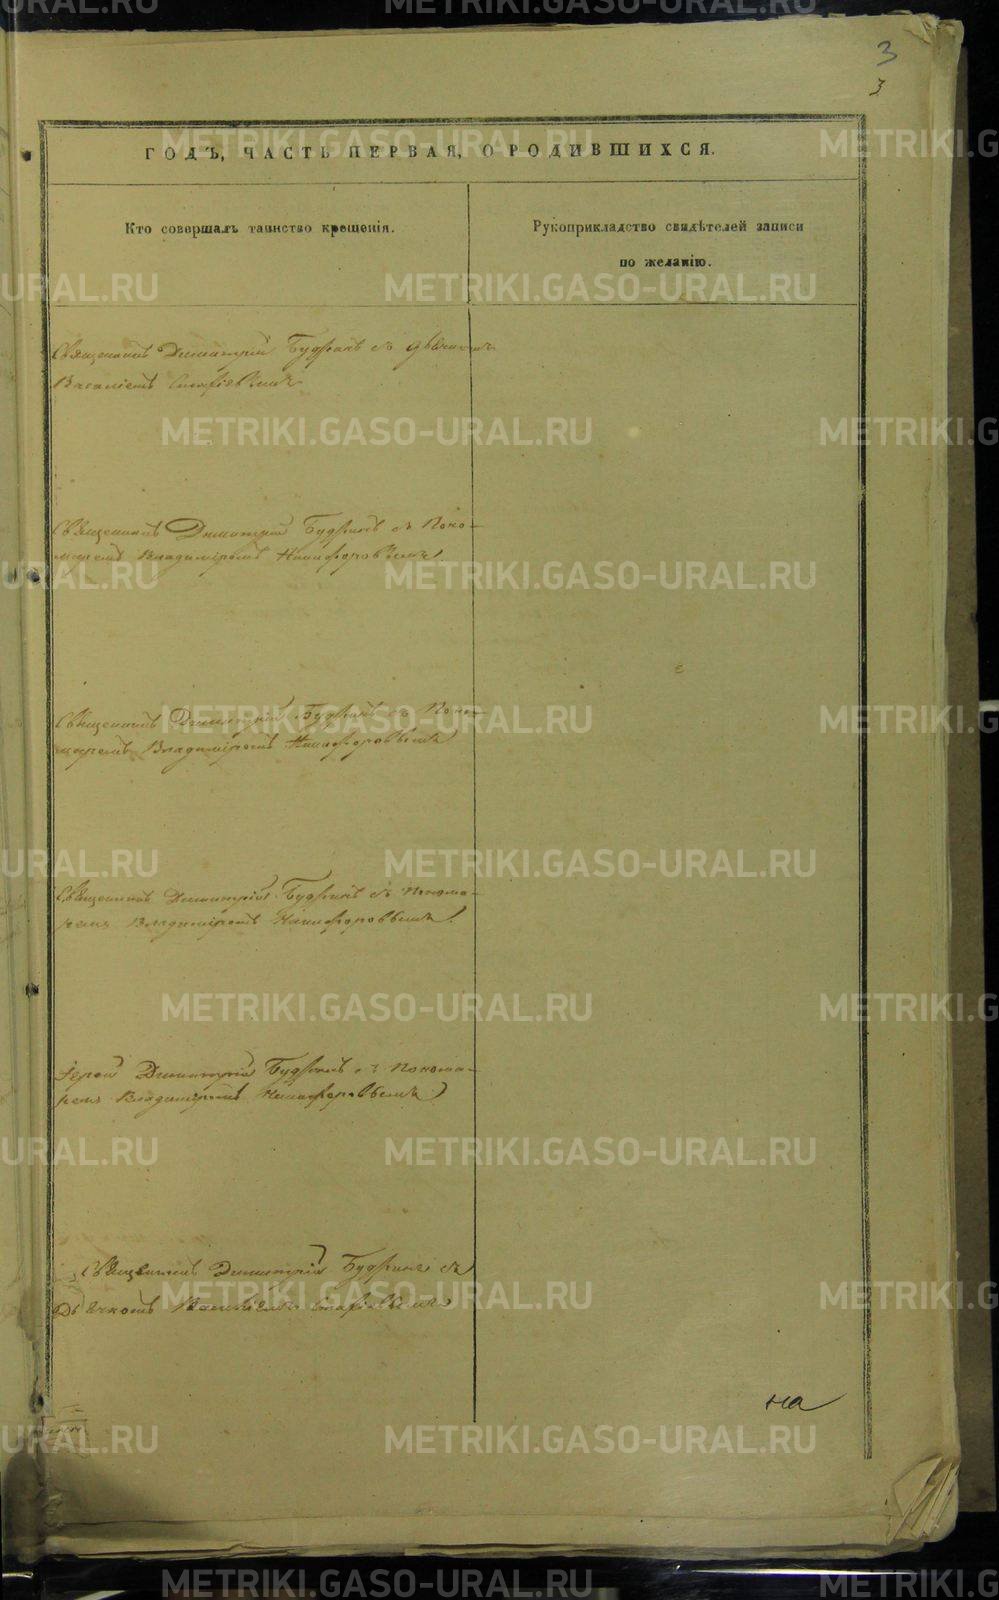 3
3
ГОДЪ, ЧАСТЬ ПЕРВАЯ, О РОДИВШИХСЯ.
Кто совершалъ таинство крещенія.
Рукоприкладство свидѣтелей записи
по желанію.
Священникъ Димитрій Будринъ съ дьячкомъ
Василіемъ
Священникъ Димитрій Будринъ съ Поно-
маремъ Владиміромъ Никифоровымъ
Священникъ Димитрій Будринъ съ Поно-
маремъ Владиміромъ Никифоровымъ
Священникъ Димитрій Будринъ съ Понома-
ремъ Владиміромъ Никифоровымъ.
Іерей Димитрій Будринъ съ Понома-
ремъ Владиміромъ Никифоровымъ
Священникъ Димитрій Будринъ съ
Дьячкомъ Василіемъ
на
METRIKI.GASO-URAL.RU